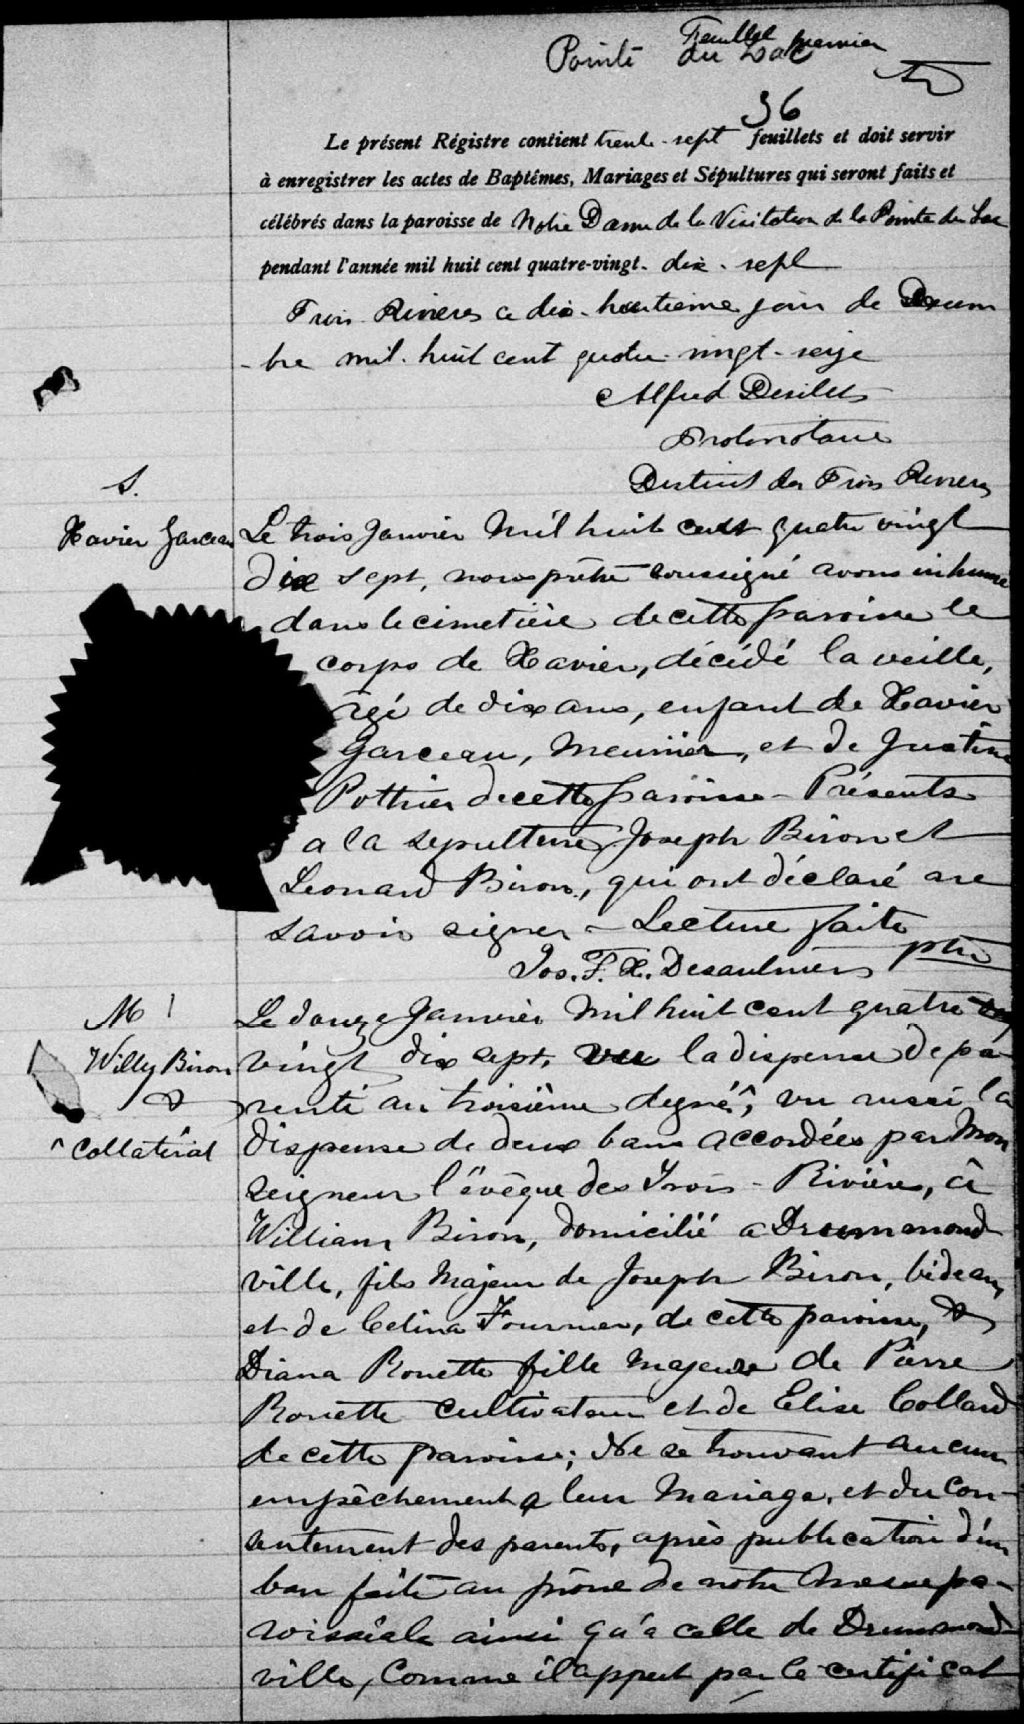 Feuillet premier
Pointe du Lac
36
Le présent Régistre contient trente-sept feuillets et doit servir
à enregistrer les actes de Baptêmes, Mariages et Sépultures qui seront faits et
célébrés dans la paroisse de Notre Dame de la Visitation de la Pointe du Lac
pendant l'année mil huit cent quatre-vingt-dix-sept
Trois Rivieres ce dix-huitieme jour de Decem
-bre mil-huit cent quatre-vingt-seize
Alfred Desilets
Protonotaire
District des Trois Rivieres
S.
Xavier Garceau
Le trois Janvier mil huit cent quatre vingt
dix sept, nous prêtre soussigné avons inhumé
dans le cimetière de cette paroisse le
corps de Xavier, décédé la veille,
âgé de dix ans, enfant de Xavier
Garceau, meunier, et de Justine
Pothier de cette paroisse - Présents
a la sepulture Joseph Biron et
Leonard Biron, qui ont déclaré ne
savoir signer - Lecture faite
Jos. F. X. Desaulniers ptre
M 1
Willy Biron
&
^ Collatéral
Le douze Janvier mil huit cent quatre
vingt dix sept, vu la dispense de pa
renté au troisième degré^, vu aussi la
dispense de deux bans accordées par Mon
seigneur l'évêque des Trois-Rivières, à
William Biron, domicilié a Drummond
ville, fils majeur de Joseph Biron, bedeau,
et de Celina Fournier, de cette paroisse, &
Diana Rouette fille majeure de Pierre
Rouette cultivateur et de Elise Collard
de cette paroisse; Ne se trouvant aucun
empêchement a leur mariage, et du con-
sentement des parents, après publication d'un
ban faite au prône de notre messe pa-
roissiale ainsi qu'a celle de Drummond
ville, comme il appert par le certificat